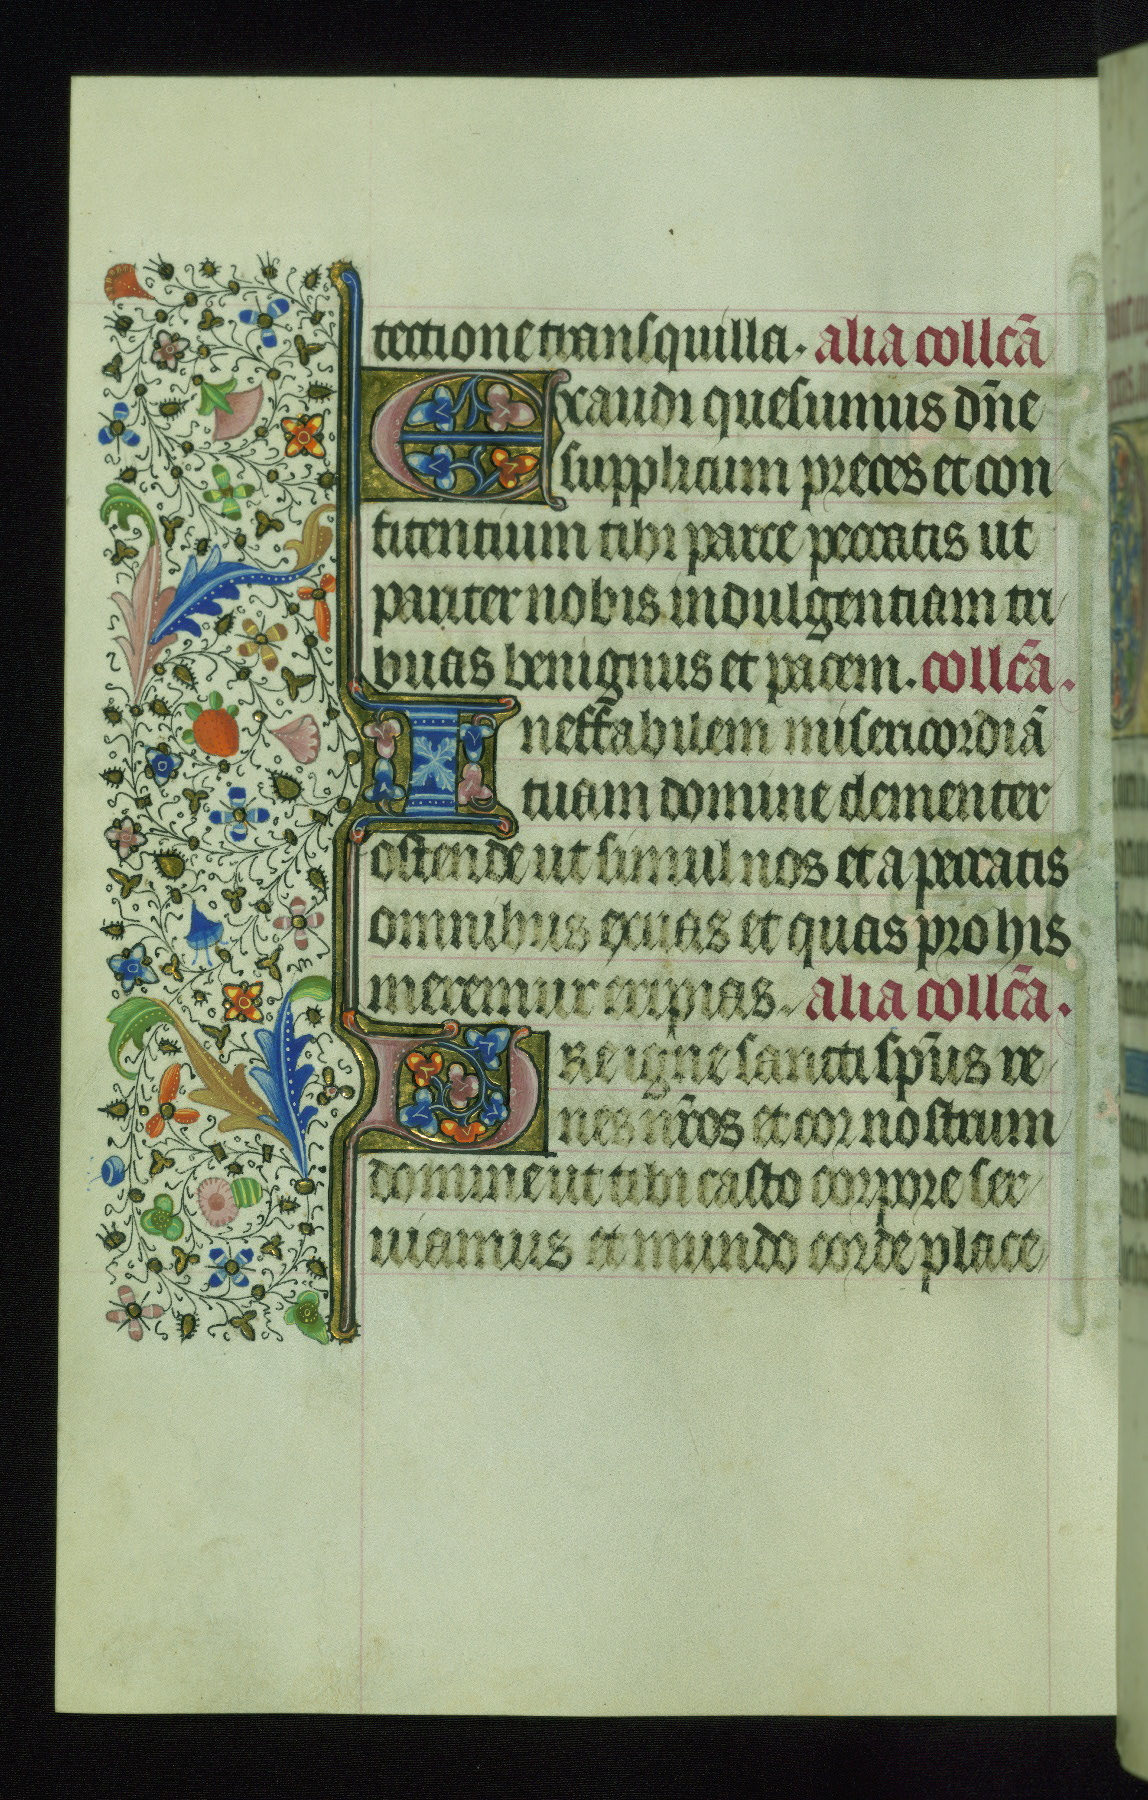 tectione transquilla. alia collcā
Exaudi quesumus dn̄e
supplicum preces et con
fitentium tibi parce peccatis ut
pariter nobis indulgentiam tri
buas benignus et pacem. collcā.
Ineffabilem misericordiā
tuam domine clementer
ostende ut simul nos et a peccatis
omnibus exuas et quas pro his
meremur eripias. alia collcā.
Vre igne sancti sp̄us re
nes nr̄os et cor nostrum
domine ut tibi casto corpore ser
uiamus et mundo corde place